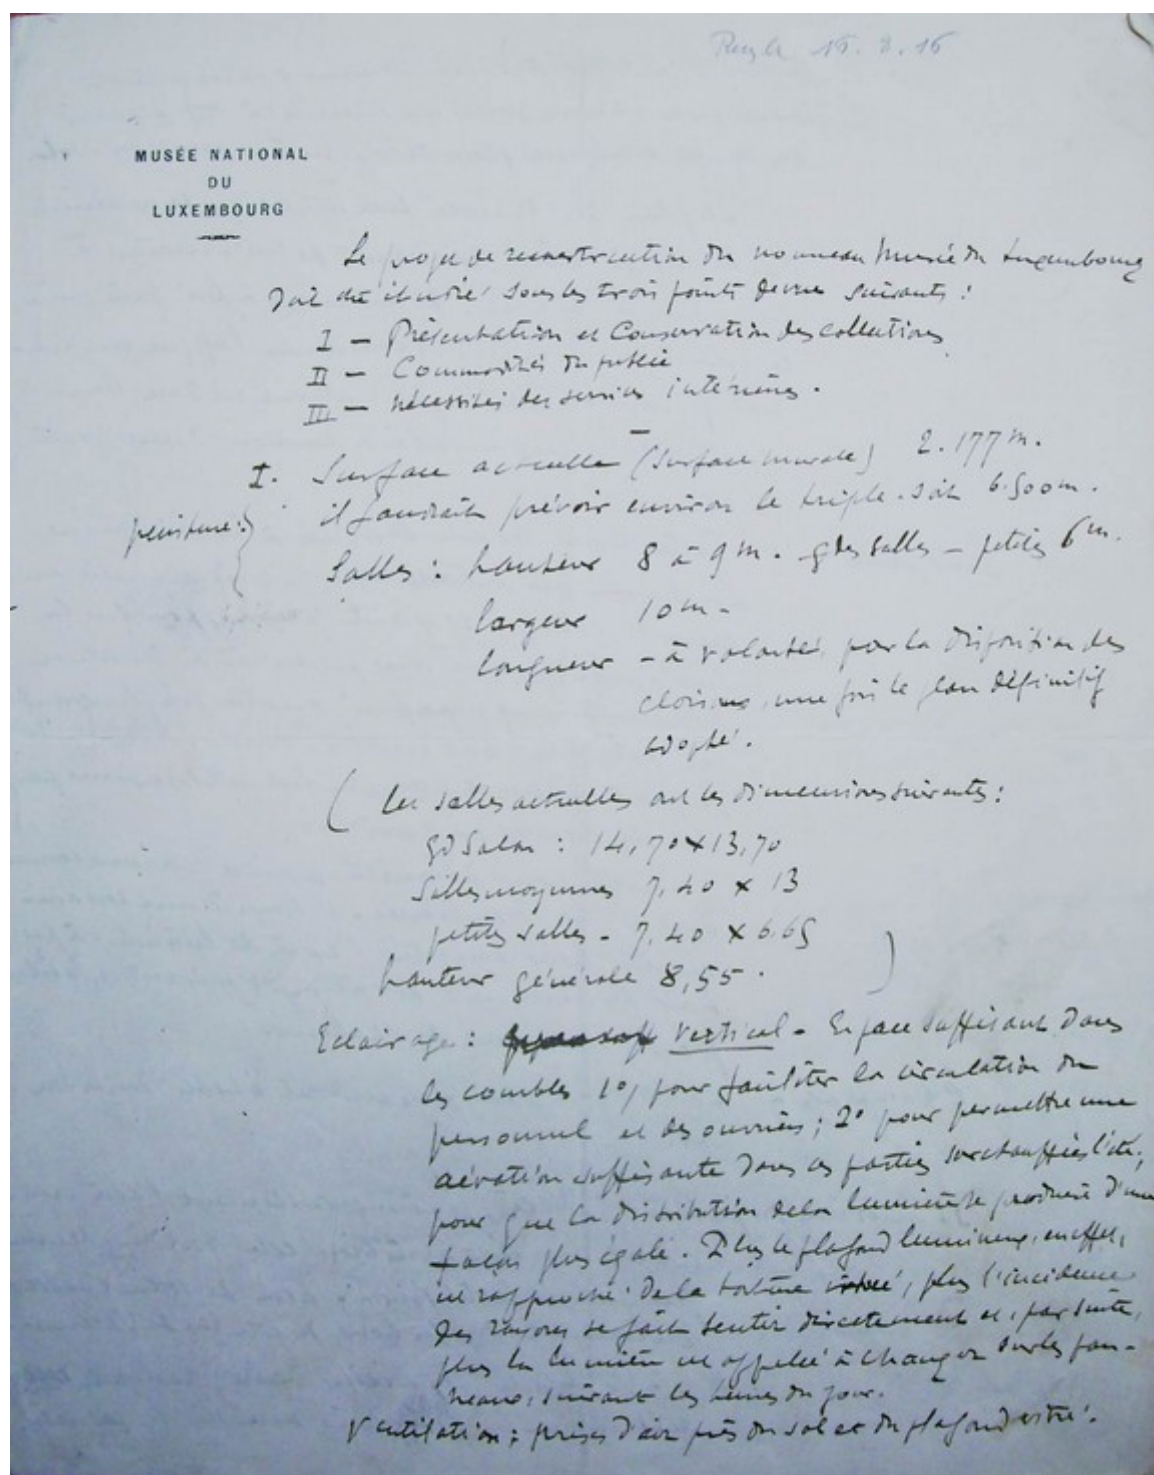 16.8.16
MUSÉE NATIONAL
DU
LUXEMBOURG
Le projet de reconstruction du nouveau Musée du Luxembourg
doit être étudié sous les trois points de vue suivants :
I — Présentation et Conservation des collections
II — Commodités du public
III — nécessités des services intérieurs.
I. Surface actuelle (surface murale) 2.177 m.
il faudrait prévoir environ le triple. soit 6.500 m.
peinture :
Salles : hauteur 8 à 9 m. gdes salles — petites 6 m.
largeur 10 m -
longueur - à volonté, par la disposition des
cloisons, une fois le plan définitif
adopté.
( les salles actuelles ont les dimensions suivantes :
gd Salon : 14,70 x 13,70
Salles moyennes 7.40 x 13
petites salles - 7.40 x 6.65
hauteur générale 8,55. )
Eclairage : vertical - Espace suffisant dans
les combles 1°/ pour faciliter la circulation du
personnel et des ouvriers ; 2° pour permettre une
aération suffisante dans ces parties surchauffées l'été ;
pour que la distribution de la lumière se produise d'une
façon plus égale. Plus le plafond lumineux, en effet,
est rapproché de la toiture vitrée, plus l'incidence
des rayons se fait sentir directement et, par suite,
plus la lumière est appelée à changer sur les pan-
neaux, suivant les heures du jour.
Ventilation : prises d'air près du sol et du plafond vitré.